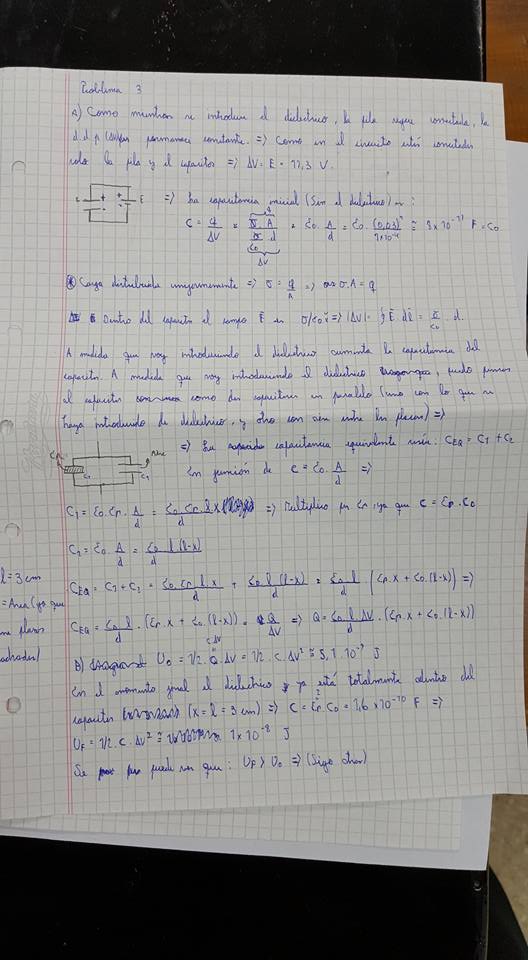 Problema 3
A) Como mientras se introduce el dieléctrico, la pila sigue conectada, la
d.d.p permanece constante. => Como en el circuito están conectados
solo la pila y el capacitor => ΔV = E = 11,3 V.
E
=> La capacitancia inicial (Sin el dieléctrico) es:
C = q/ΔV = σ.A / (σ/ε0 . d) = ε0 . A/d = ε0 . (0,03)² ≅ 8x10⁻¹¹ F = C0
Carga distribuida uniformemente => σ = q/A => σ.A = q
Dentro del capacitor el campo E es σ/ε0 => |ΔV| = ∫ E dl = σ/ε0 d.
A medida que voy introduciendo el dieléctrico aumenta la capacitancia del
capacitor. A medida que voy introduciendo el dieléctrico, puedo pensar
el capacitor como dos capacitores en paralelo (uno con lo que se
haya introducido de dieléctrico, y otro con aire entre las placas) =>
=> La capacitancia equivalente será: CEQ = C1 + C2
Aire
En función de C = ε0 . A/d =>
C1 = ε0 . εr . A/d = ε0 . εr . l x / d => Multiplico por εr, ya que C = εr . C0
C2 = ε0 . A/d = ε0 . l (l-x) / d
l = 3 cm
CEQ = C1 + C2 = ε0 . εr . l . x / d + ε0 . l (l-x) / d = ε0 . l / d (εr . x + ε0 . (l-x)) =>
= Area (ya que
CEQ = ε0 . l / d . (εr . x + ε0 . (l-x)) = Q/ΔV => Q = ε0 . l . ΔV / d . (εr . x + ε0 . (l-x))
placas
C.ΔV
B) U0 = 1/2 . Q . ΔV = 1/2 . C . ΔV² ≅ 5,1 x 10⁻⁹ J
En el momento final el dieléctrico ya está totalmente dentro del
capacitor (x = l = 3 cm) => C = εr C0 = 1,6 x 10⁻¹⁰ F =>
UF = 1/2 . C . ΔV² ≅ 1 x 10⁻⁸ J
Se puede ver que: UF > U0 => (Sigo atrás)